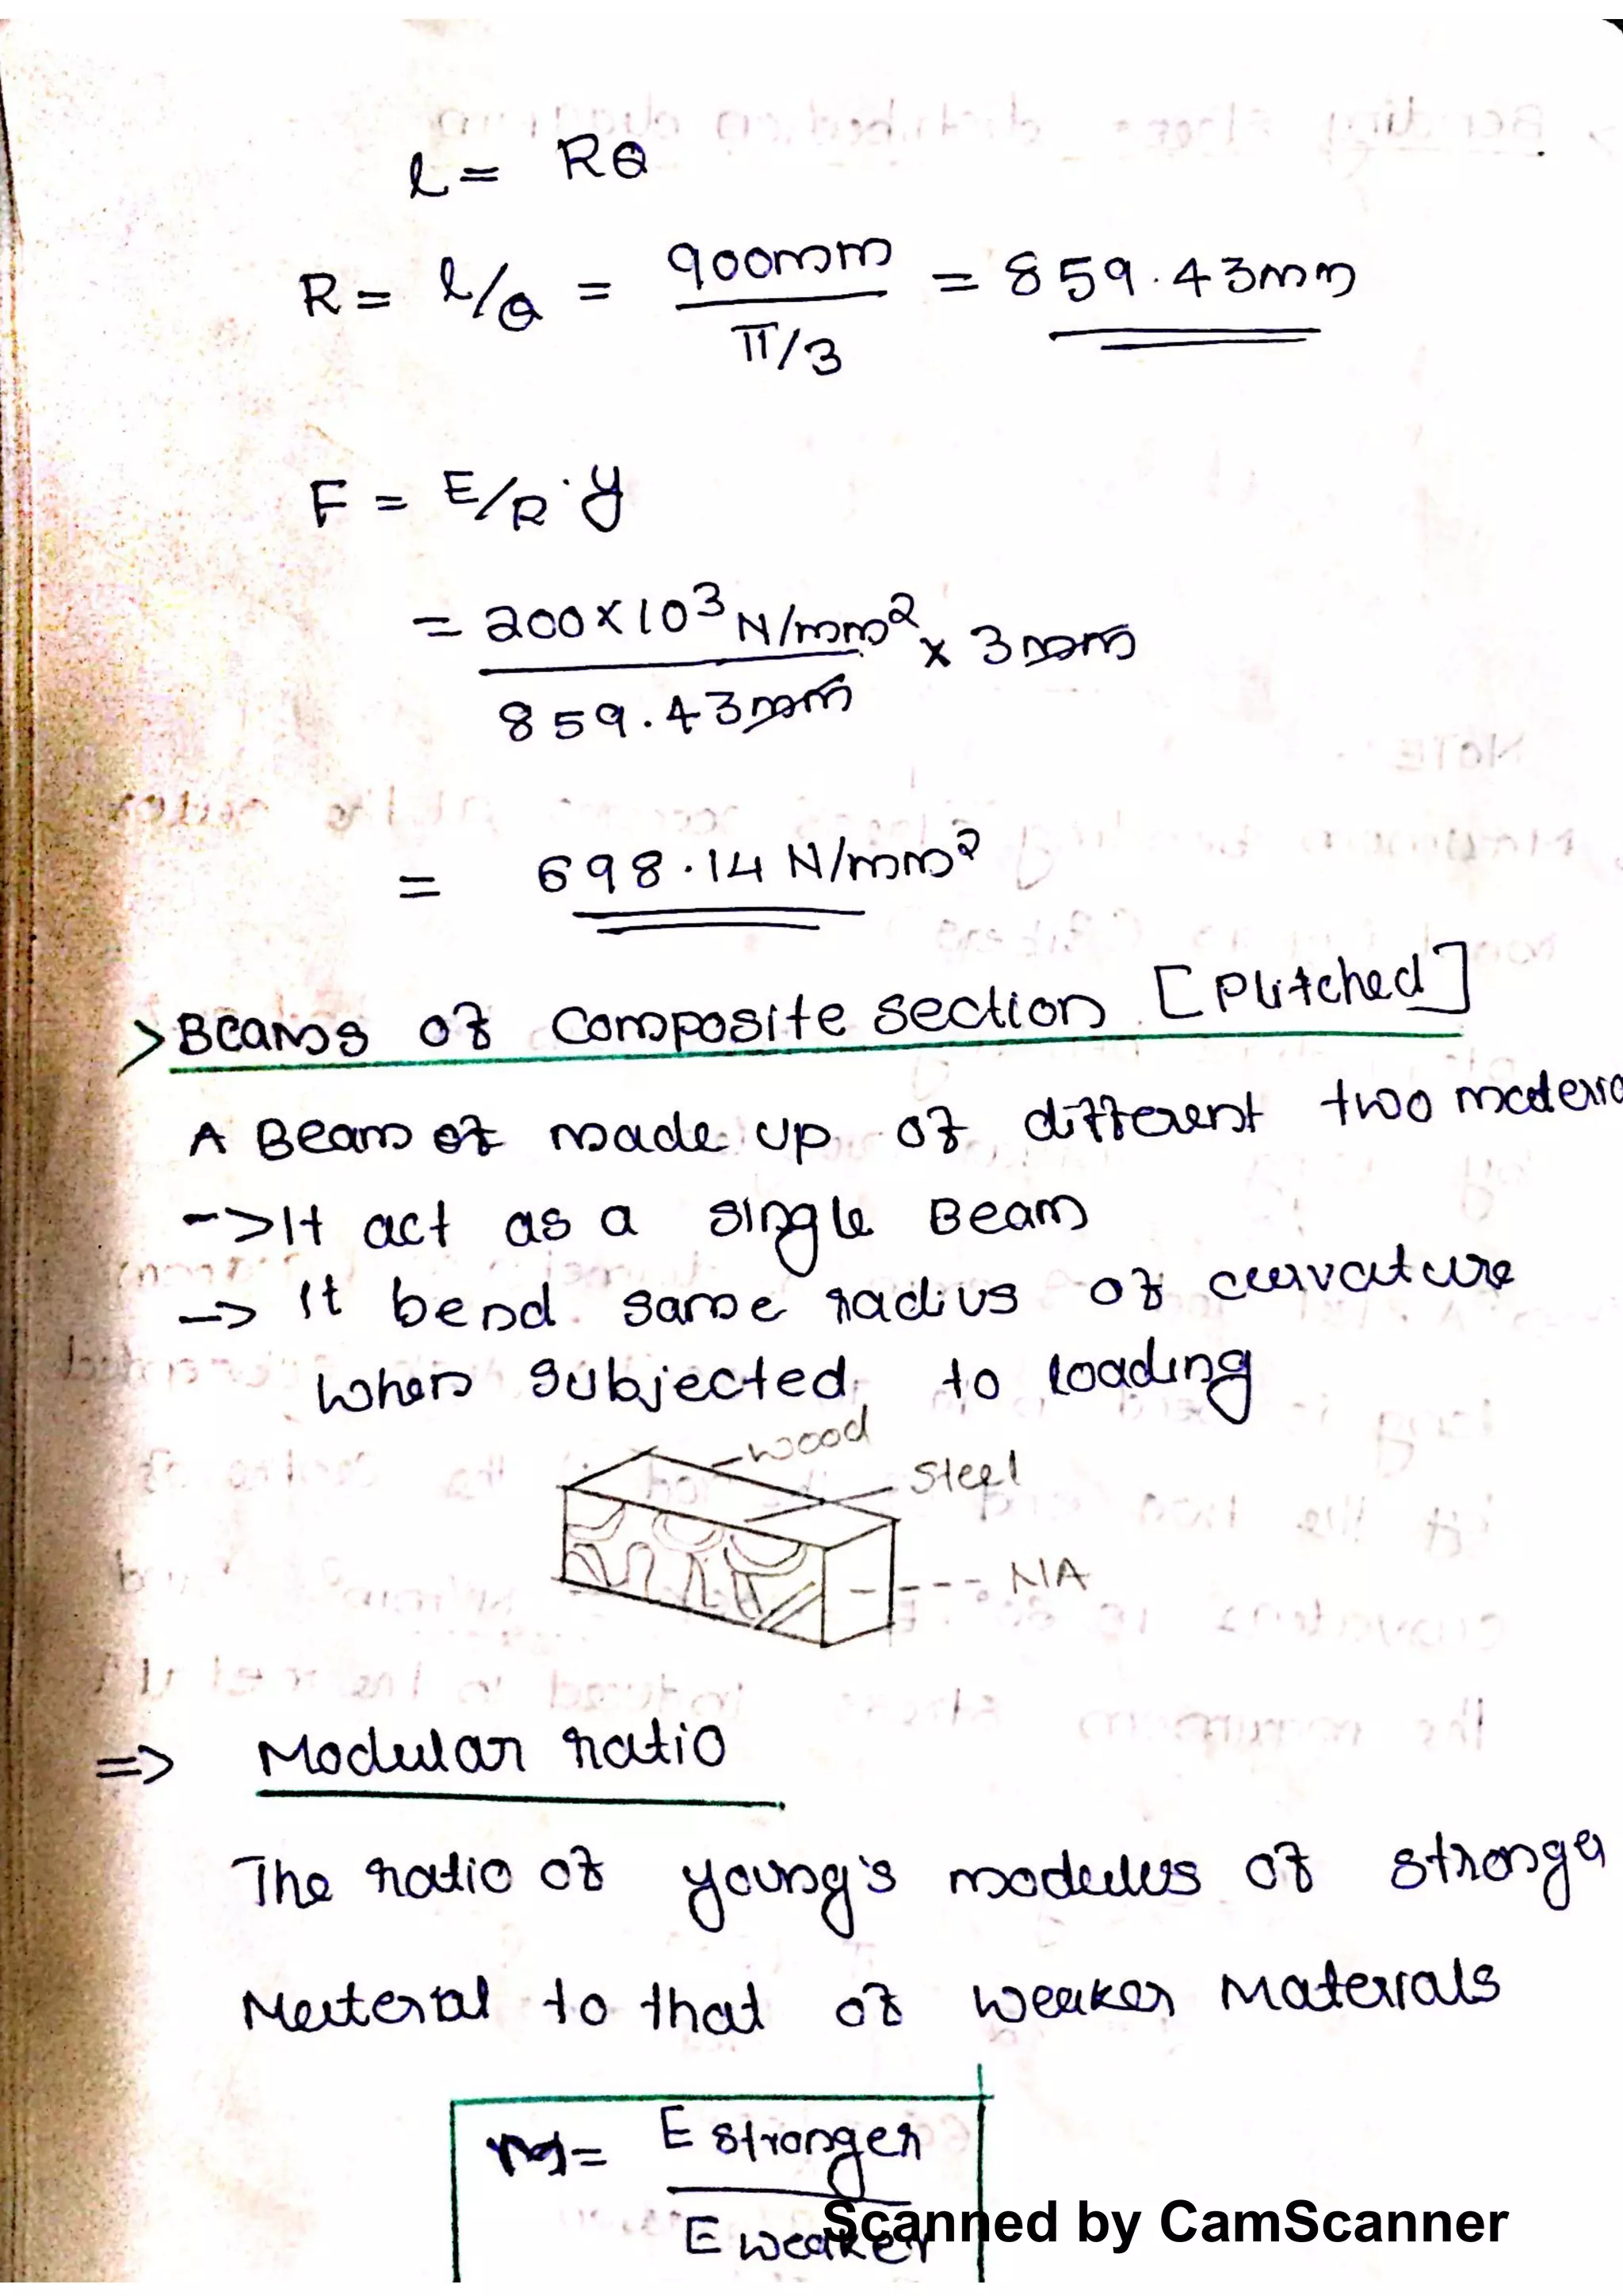 l = Rθ
R = l/θ = 900mm / π/3 = 859.43mm
F = E/R . y
= 200×10³ N/mm² / 859.43mm × 3mm
= 698.14 N/mm²
> Beams of Composite section [Plitched]
A Beam of made up of different two
-> It act as a single Beam
-> It bend same radius of curvature
when subjected to loading
wood
Steel
NA
=> Modular ratio
The ratio of young's modulus of
Material to that of weaker Materials
m = E stronger
E weaker
Scanned by CamScanner